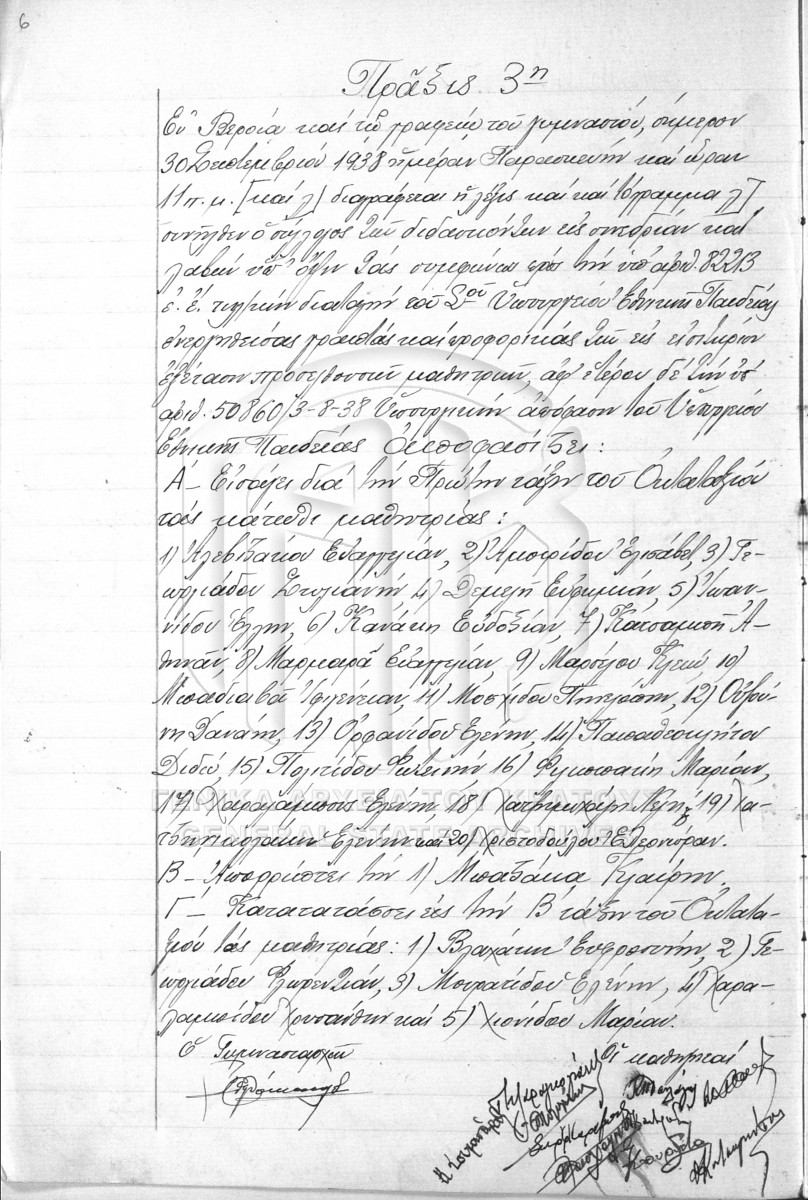 6
Πρᾶξις 3η
Ἐν Βεροίᾳ καὶ τῷ γραφείῳ τοῦ γυμνασίου, σήμερον
30 Σεπτεμβρίου 1938 ἡμέραν Παρασκευὴν καὶ ὥραν
11 π.μ. [καὶ λ] διαγράφεται ἡ λέξις καὶ καὶ τὸ γράμμα λ]
συνῆλθεν ὁ σύλλογος τῶν διδασκόντων εἰς συνεδρίαν καὶ
λαβὼν ὑπ' ὄψιν τὰς συμφώνως πρὸς τὴν ὑπ' ἀριθ. 82213
ἐ. ἔ. διαταγὴν τοῦ Σοῦ Ὑπουργείου Ἐθνικῆς Παιδείας
ἐνεργηθείσας γραπτὰς καὶ προφορικὰς τῶν εἰς εἰσιτήριον
ἐξέτασιν προσελθουσῶν μαθητριῶν, ἀφ' ἑτέρου δὲ τὴν ὑπ'
ἀριθ. 50860/3-8-38 Ὑπουργικὴν ἀπόφασιν τοῦ Ὑπουργείου
Ἐθνικῆς Παιδείας Ἀποφασίζει:
Α – Εἰσάγει διὰ τὴν Πρώτην τάξιν τοῦ Ὀκταταξίου
τὰς κάτωθι μαθητρίας:
1) Ἀλεβιζάκου Εὐαγγελίαν, 2) Ἀμοιρίδου Ἐλισάβετ, 3) Γε-
ωργιάδου Στυλιανήν 4) Δεμελῆ Εὐθυμίαν, 5) Ἰωαν-
νίδου Ἕλλην, 6) Κανάκη Εὐδοξίαν, 7) Κατσαμπῆ Ἀ-
θηνᾶν, 8) Μαρμαρᾶ Εὐαγγελίαν, 9) Μαρσέλου Κλειώ, 10)
Μπαδιαβᾶ Ἰφιγένειαν, 11) Μοσχίδου Πηνελόπην, 12) Οὐζού-
νη Δανάην, 13) Ὀρφανίδου Ἑλένην, 14) Παπαθεοκλήτου
Διδώ, 15) Πολιτίδου Φωτεινήν 16) Μαρίαν,
17) Χαραλάμπους Ἑλένην, 18) Χατζημιχάλη Λέλην 19) Χα-
τζηνικολάκη Ἑλένην καὶ 20) Χριστοδούλου Ἐλεονώραν.
Β – Ἀπορρίπτει τὴν 1) Μπαζάκα Κλαίρην.
Γ – Κατατατάσσει εἰς τὴν Β τάξιν τοῦ Ὀκτατα-
ξίου τὰς μαθητρίας: 1) Βλαχάκη Εὐφροσύνην, 2) Γε-
ωργιάδου Φλωρεντίαν, 3) Μουρατίδου Ἑλένην, 4) Χαρα-
λαμπίδου Χρυσάνθην καὶ 5) Χιονίδου Μαρίαν.
Ὁ Γυμνασιάρχης
Οἱ καθηγηταί
ΓΕΝΙΚΑ ΑΡΧΕΙΑ ΤΟΥ ΚΡΑΤΟΥΣ
GENERAL STATE ARCHIVES